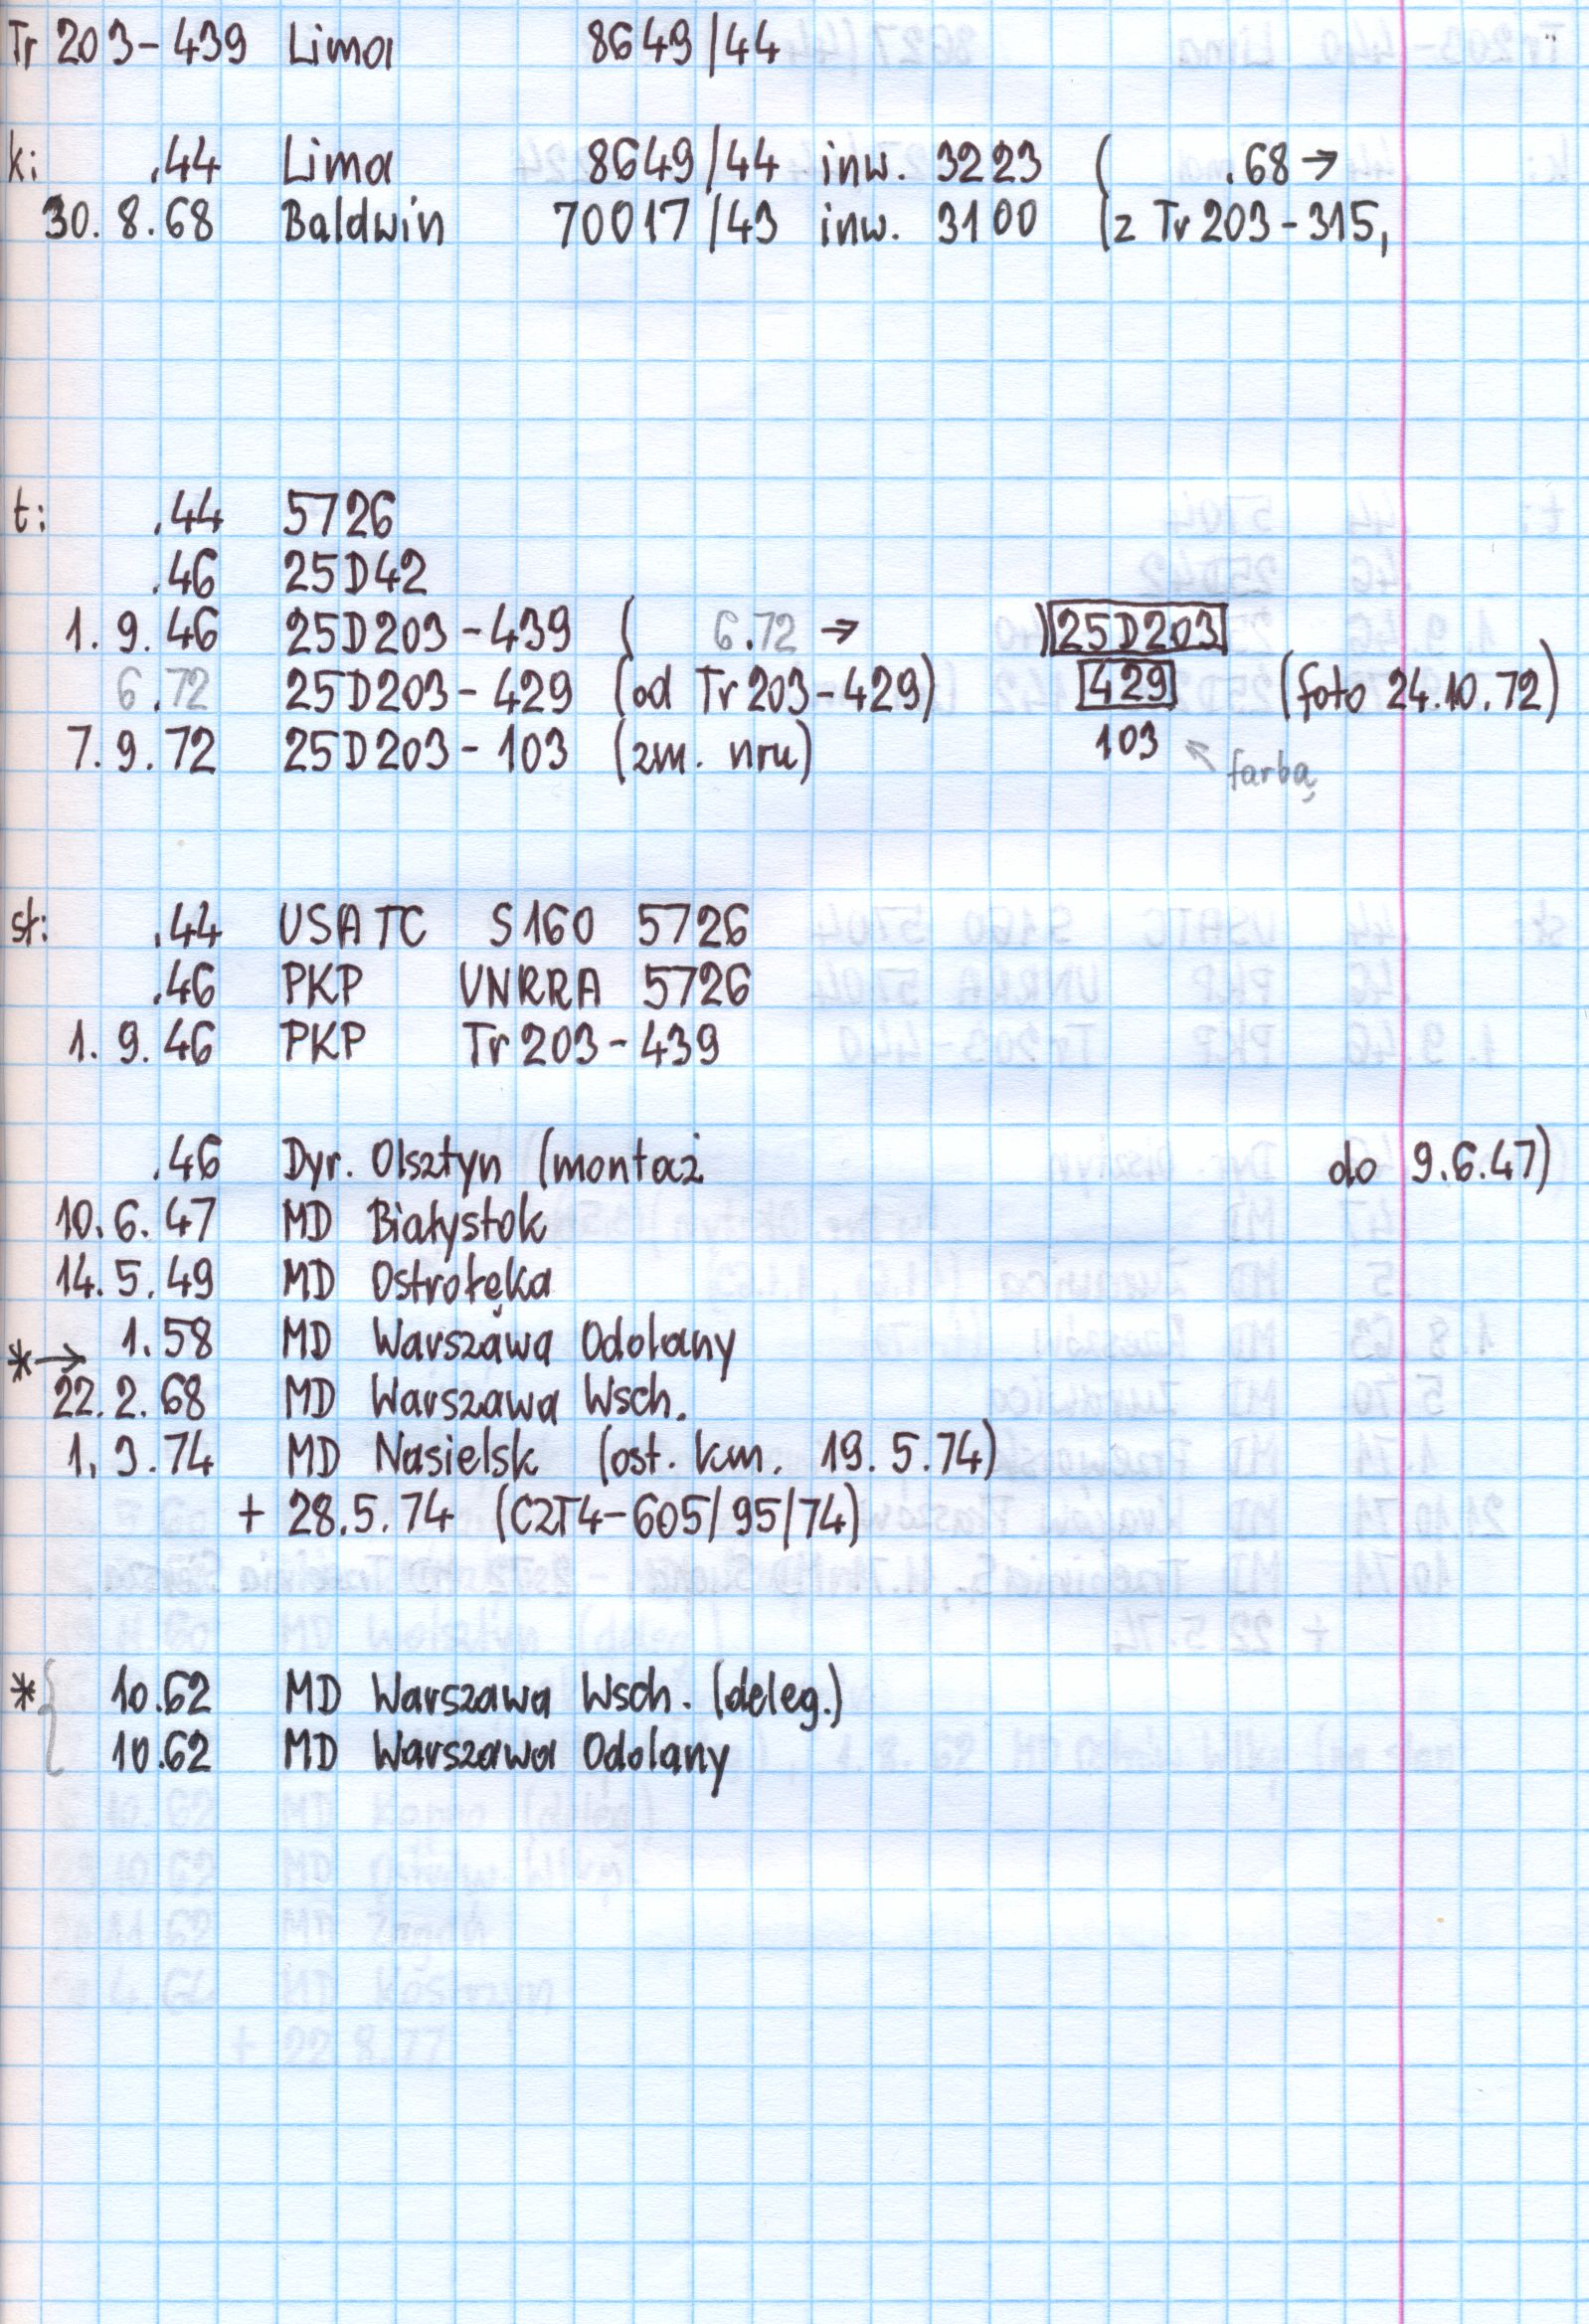 Tr 203-439 Lima 8649/44
k: .44 Lima 8649/44 inw. 3223 ( .68 →
30.8.68 Baldwin 70017/43 inw. 3100 (z Tr 203-315,
t: .44 5726
.46 25D42
1.9.46 25D203-439 ( 6.72 → ) 25D203
6.72 25D203-429 (od Tr 203-429) 429 (foto 24.10.72)
7.9.72 25D203-103 (zm. nru) 103 ← farbą
st: .44 USATC S160 5726
.46 PKP UNRRA 5726
1.9.46 PKP Tr 203-439
.46 Dyr. Olsztyn (montaż do 9.6.47)
10.6.47 MD Białystok
14.5.49 MD Ostrołęka
1.58 MD Warszawa Odolany
*→
22.2.68 MD Warszawa Wsch.
1.3.74 MD Nasielsk (ost. km. 19.5.74)
+ 28.5.74 (CZT4-605/95/74)
* { 10.62 MD Warszawa Wsch. (deleg.)
10.62 MD Warszawa Odolany